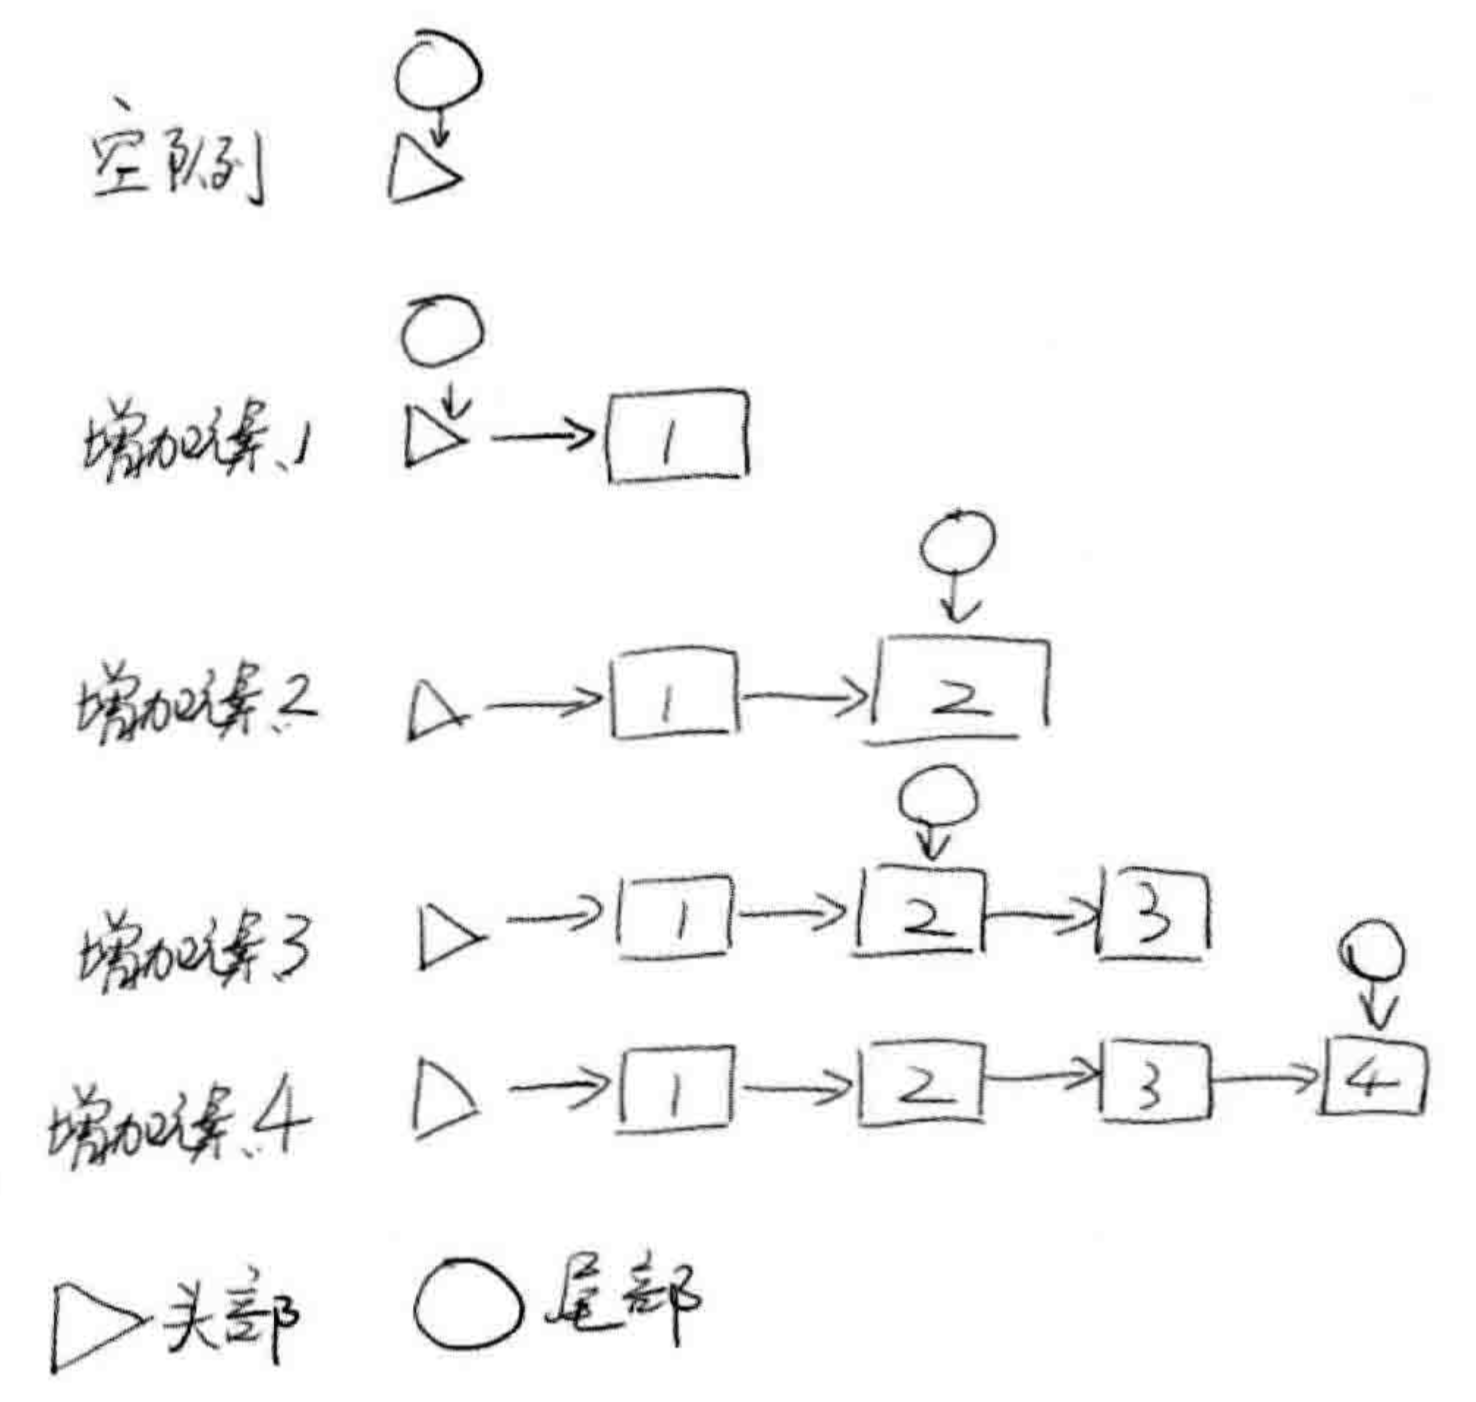 空队列
增加元素1
1
增加元素2
1 2
增加元素3
1 2 3
增加元素4
1 2 3 4
头部 尾部